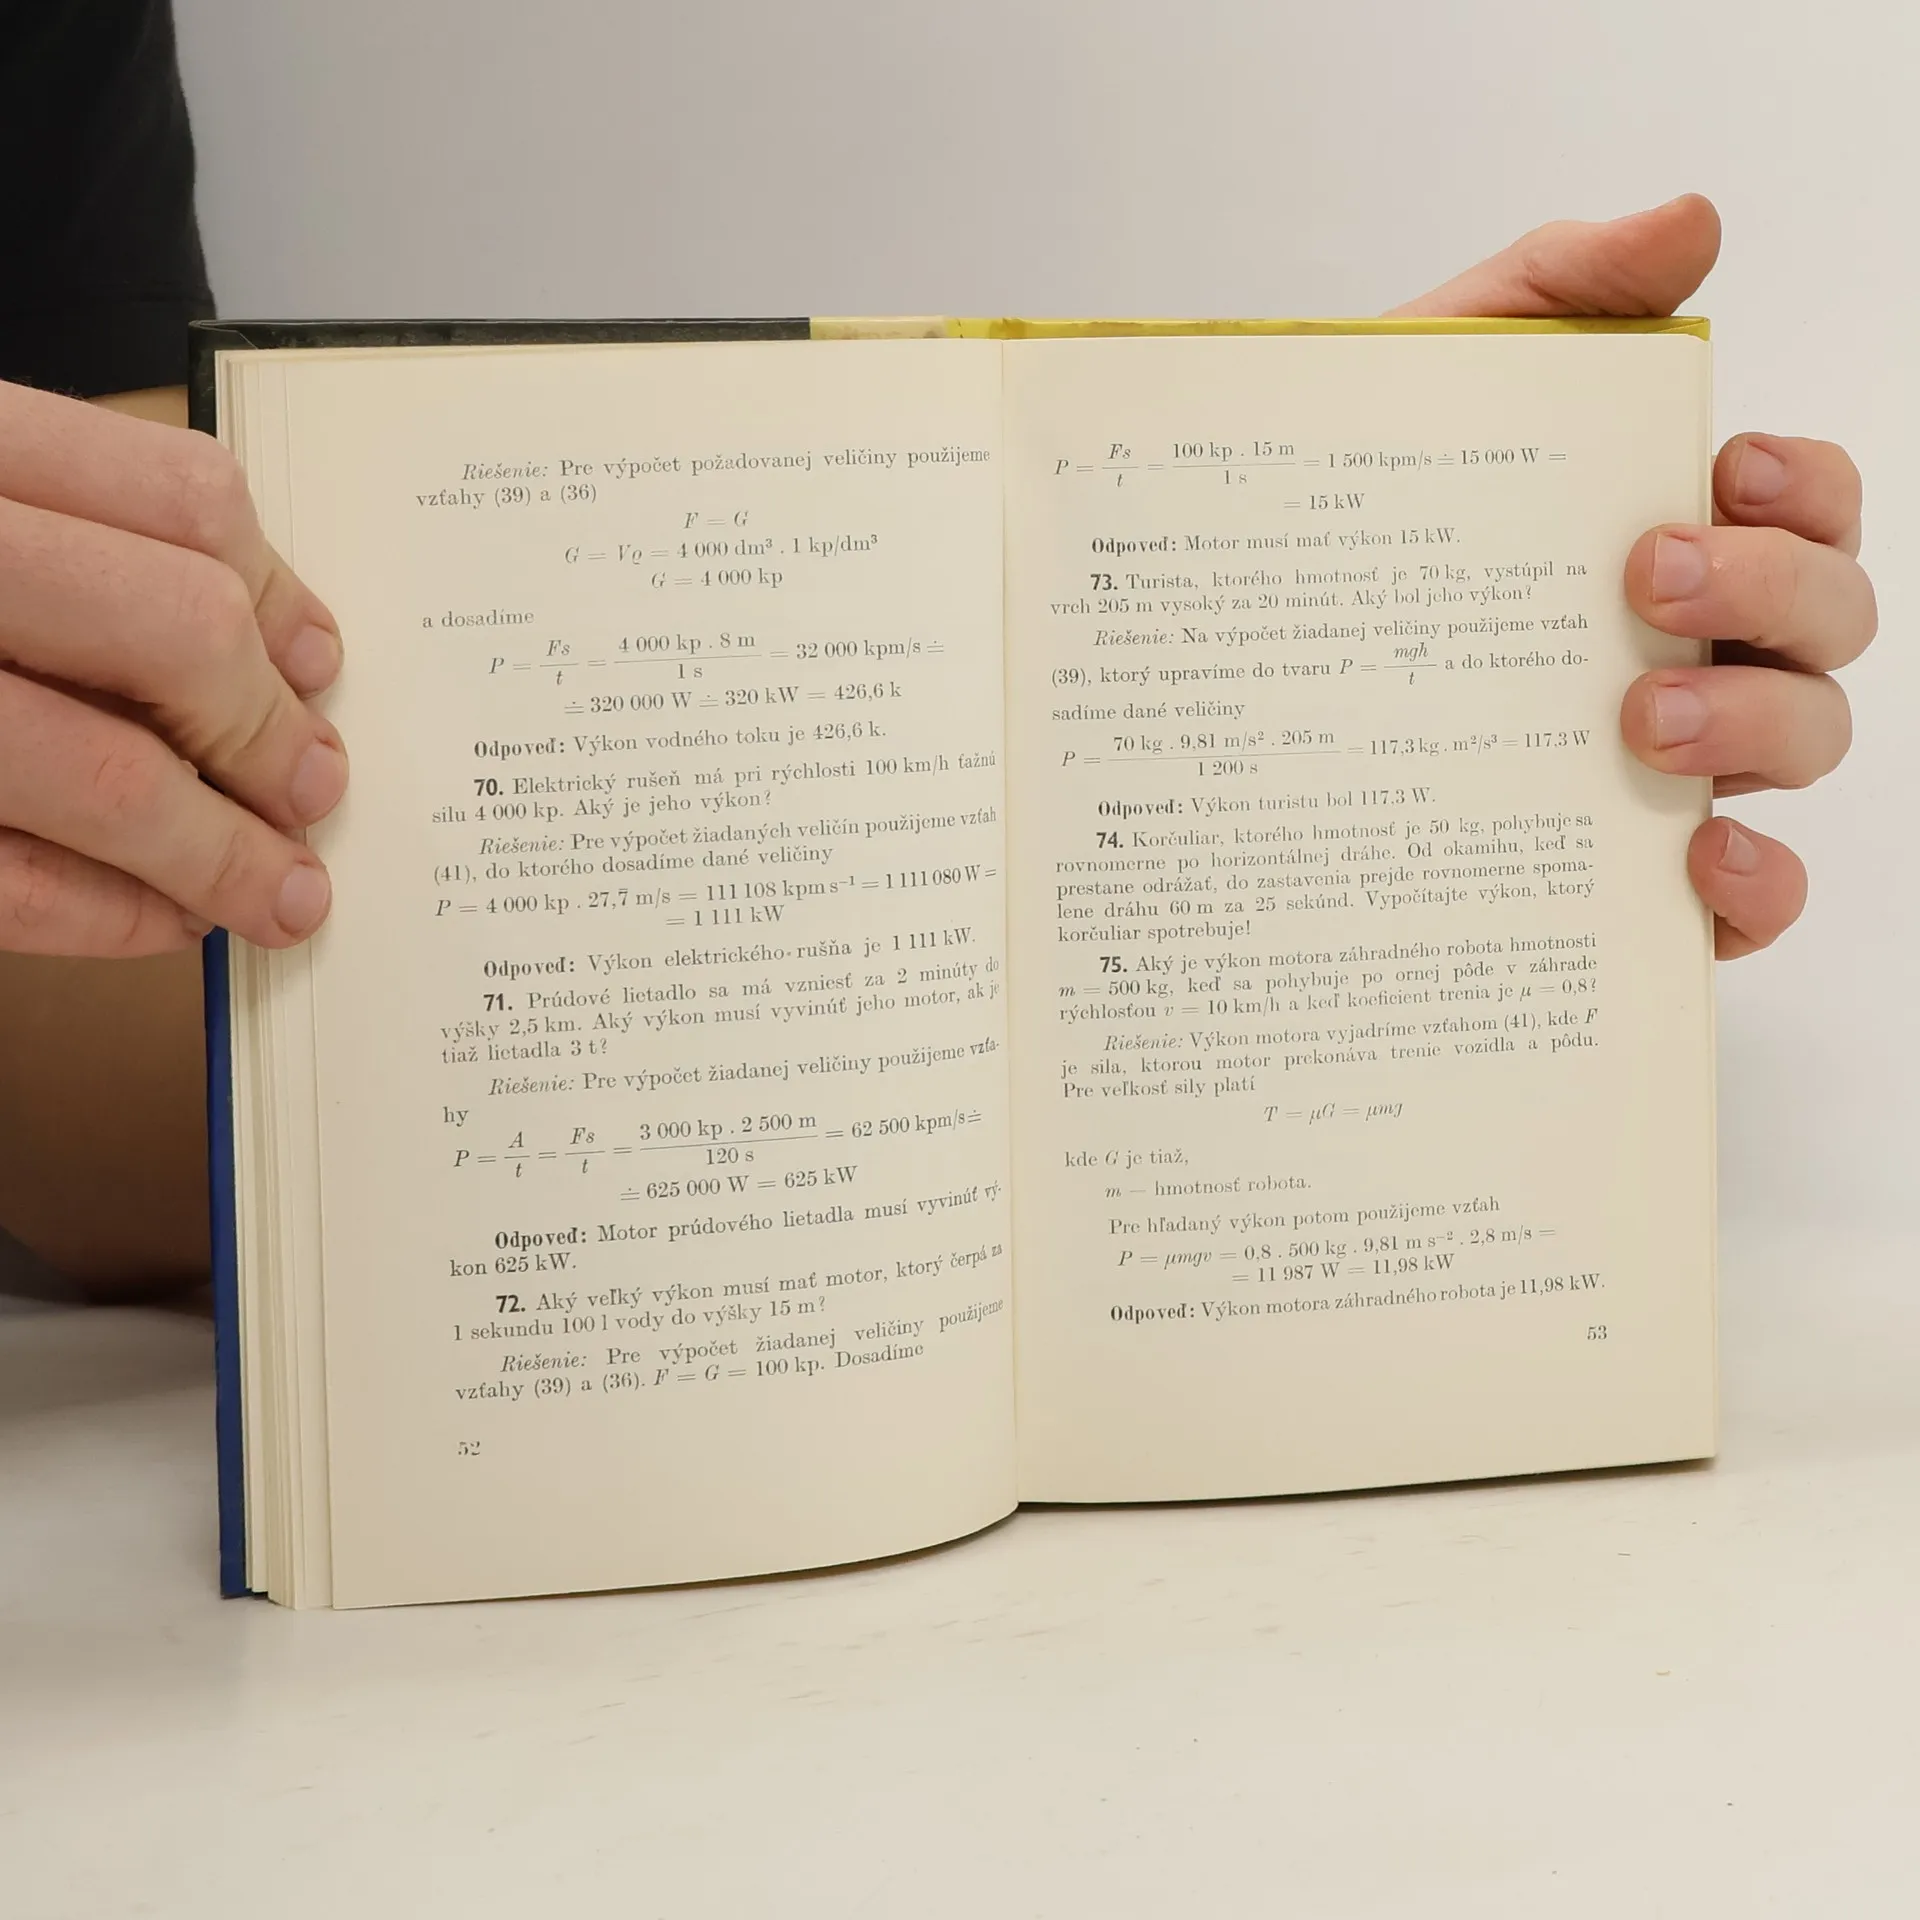 Riešenie: Pre výpočet požadovanej veličiny použijeme
vzťahy (39) a (36)
F = G
G = Vϱ = 4 000 dm³ . 1 kp/dm³
G = 4 000 kp
a dosadíme
P = Fs/t = 4 000 kp . 8 m/1 s = 32 000 kpm/s ≐
≐ 320 000 W ≐ 320 kW = 426,6 k
Odpoveď: Výkon vodného toku je 426,6 k.
70. Elektrický rušeň má pri rýchlosti 100 km/h ťažnú
silu 4 000 kp. Aký je jeho výkon?
Riešenie: Pre výpočet žiadaných veličín použijeme vzťah
(41), do ktorého dosadíme dané veličiny
P = 4 000 kp . 27,7̄ m/s = 111 108 kpm s⁻¹ = 1 111 080 W =
= 1 111 kW
Odpoveď: Výkon elektrického rušňa je 1 111 kW.
71. Prúdové lietadlo sa má vzniesť za 2 minúty do
výšky 2,5 km. Aký výkon musí vyvinúť jeho motor, ak je
tiaž lietadla 3 t?
Riešenie: Pre výpočet žiadanej veličiny použijeme vzťa-
hy
P = A/t = Fs/t = 3 000 kp . 2 500 m/120 s = 62 500 kpm/s ≐
≐ 625 000 W = 625 kW
Odpoveď: Motor prúdového lietadla musí vyvinúť vý-
kon 625 kW.
72. Aký veľký výkon musí mať motor, ktorý čerpá za
1 sekundu 100 l vody do výšky 15 m?
Riešenie: Pre výpočet žiadanej veličiny použijeme
vzťahy (39) a (36). F = G = 100 kp. Dosadíme
52
P = Fs/t = 100 kp . 15 m/1 s = 1 500 kpm/s ≐ 15 000 W =
= 15 kW
Odpoveď: Motor musí mať výkon 15 kW.
73. Turista, ktorého hmotnosť je 70 kg, vystúpil na
vrch 205 m vysoký za 20 minút. Aký bol jeho výkon?
Riešenie: Na výpočet žiadanej veličiny použijeme vzťah
(39), ktorý upravíme do tvaru P = mgh/t a do ktorého do-
sadíme dané veličiny
P = 70 kg . 9,81 m/s² . 205 m/1 200 s = 117,3 kg . m²/s³ = 117,3 W
Odpoveď: Výkon turistu bol 117,3 W.
74. Korčuliar, ktorého hmotnosť je 50 kg, pohybuje sa
rovnomerne po horizontálnej dráhe. Od okamihu, keď sa
prestane odrážať, do zastavenia prejde rovnomerne spoma-
lene dráhu 60 m za 25 sekúnd. Vypočítajte výkon, ktorý
korčuliar spotrebuje!
75. Aký je výkon motora záhradného robota hmotnosti
m = 500 kg, keď sa pohybuje po ornej pôde v záhrade
rýchlosťou v = 10 km/h a keď koeficient trenia je μ = 0,8?
Riešenie: Výkon motora vyjadríme vzťahom (41), kde F
je sila, ktorou motor prekonáva trenie vozidla a pôdu.
Pre veľkosť sily platí
T = μG = μmg
kde G je tiaž,
m — hmotnosť robota.
Pre hľadaný výkon potom použijeme vzťah
P = μmgv = 0,8 . 500 kg . 9,81 m s⁻² . 2,8 m/s =
= 11 987 W = 11,98 kW
Odpoveď: Výkon motora záhradného robota je 11,98 kW.
53